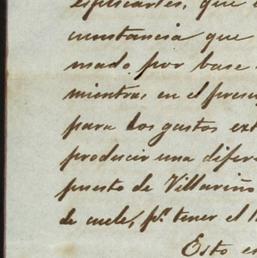 esplicarles, que
cunstancia que
mado por base
mientras en el presu
para los gastos ext
producir una difere
puesto de Villariño
de cueles, pr. tener el
Esto es